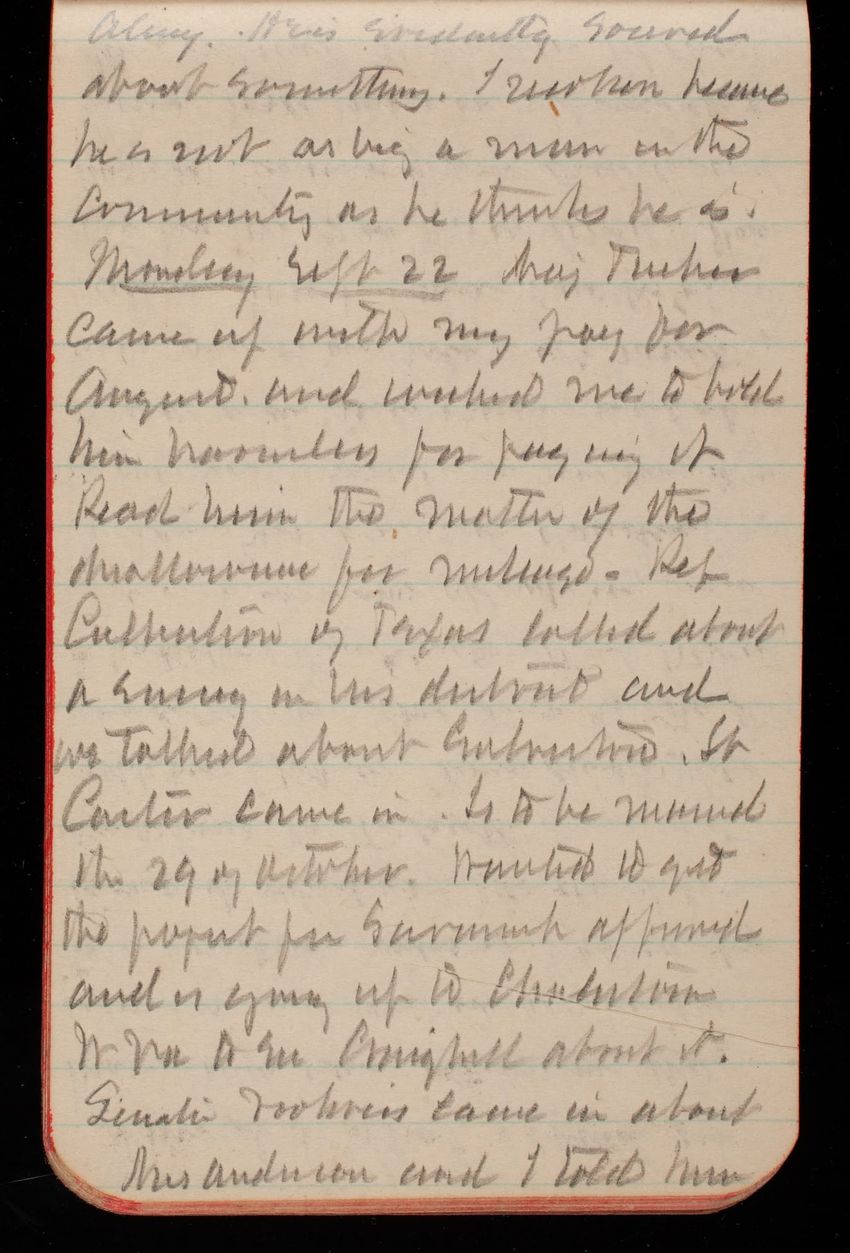 Alney. He is evidently soured
about something. I reckon because
he is not as big a man in the
community as he thinks he is.
Monday Sept 22 Maj Tucker
came up with my pay for
August. and wished me to hold
him harmless for paying it
Read him the matter of the
disallowance for mileage - Rep
Culberson of Texas called about
a survey in his district and
we talked about Galveston. Lt
Carter came in. Is to be married
the 29 of October. Wanted to get
the project for Savannah approved
and is going up to Charleston
W Va to see Craighill about it.
Senator came in about
Mrs Anderson and I told him